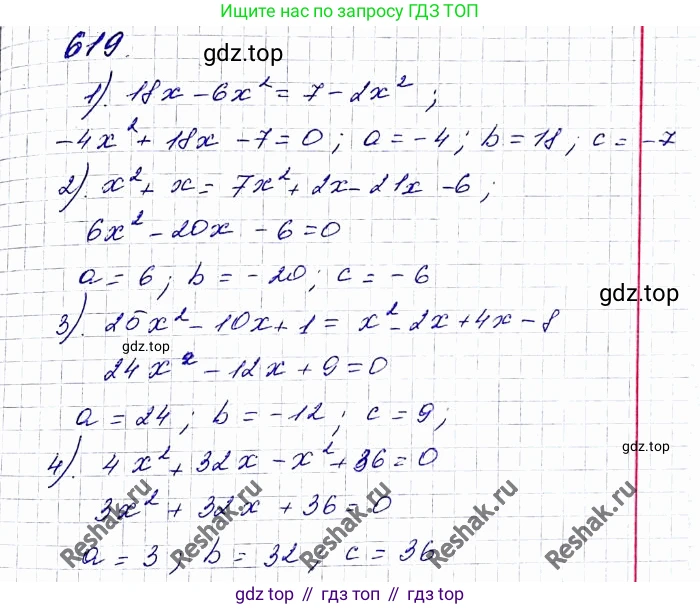 Ищите нас по запросу ГДЗ ТОП
619.
gdz.top
1). 18x - 6x² = 7 - 2x² ;
-4x² + 18x - 7 = 0 ; a = -4 ; b = 18 ; c = -7
2). x² + x = 7x² + 2x - 21x - 6 ;
6x² - 20x - 6 = 0
a = 6 ; b = -20 ; c = -6
gdz.top
3). 25x² - 10x + 1 = x² - 2x + 4x - 8
gdz.top
24x² - 12x + 9 = 0
a = 24 ; b = -12 ; c = 9 ;
gdz.top
4). 4x² + 32x - x² + 36 = 0
3x² + 32x + 36 = 0
a = 3 ; b = 32 ; c = 36
Reshak.ru
Reshak.ru
Reshak.ru
Reshak.ru
gdz.top // gdz.top // gdz.top